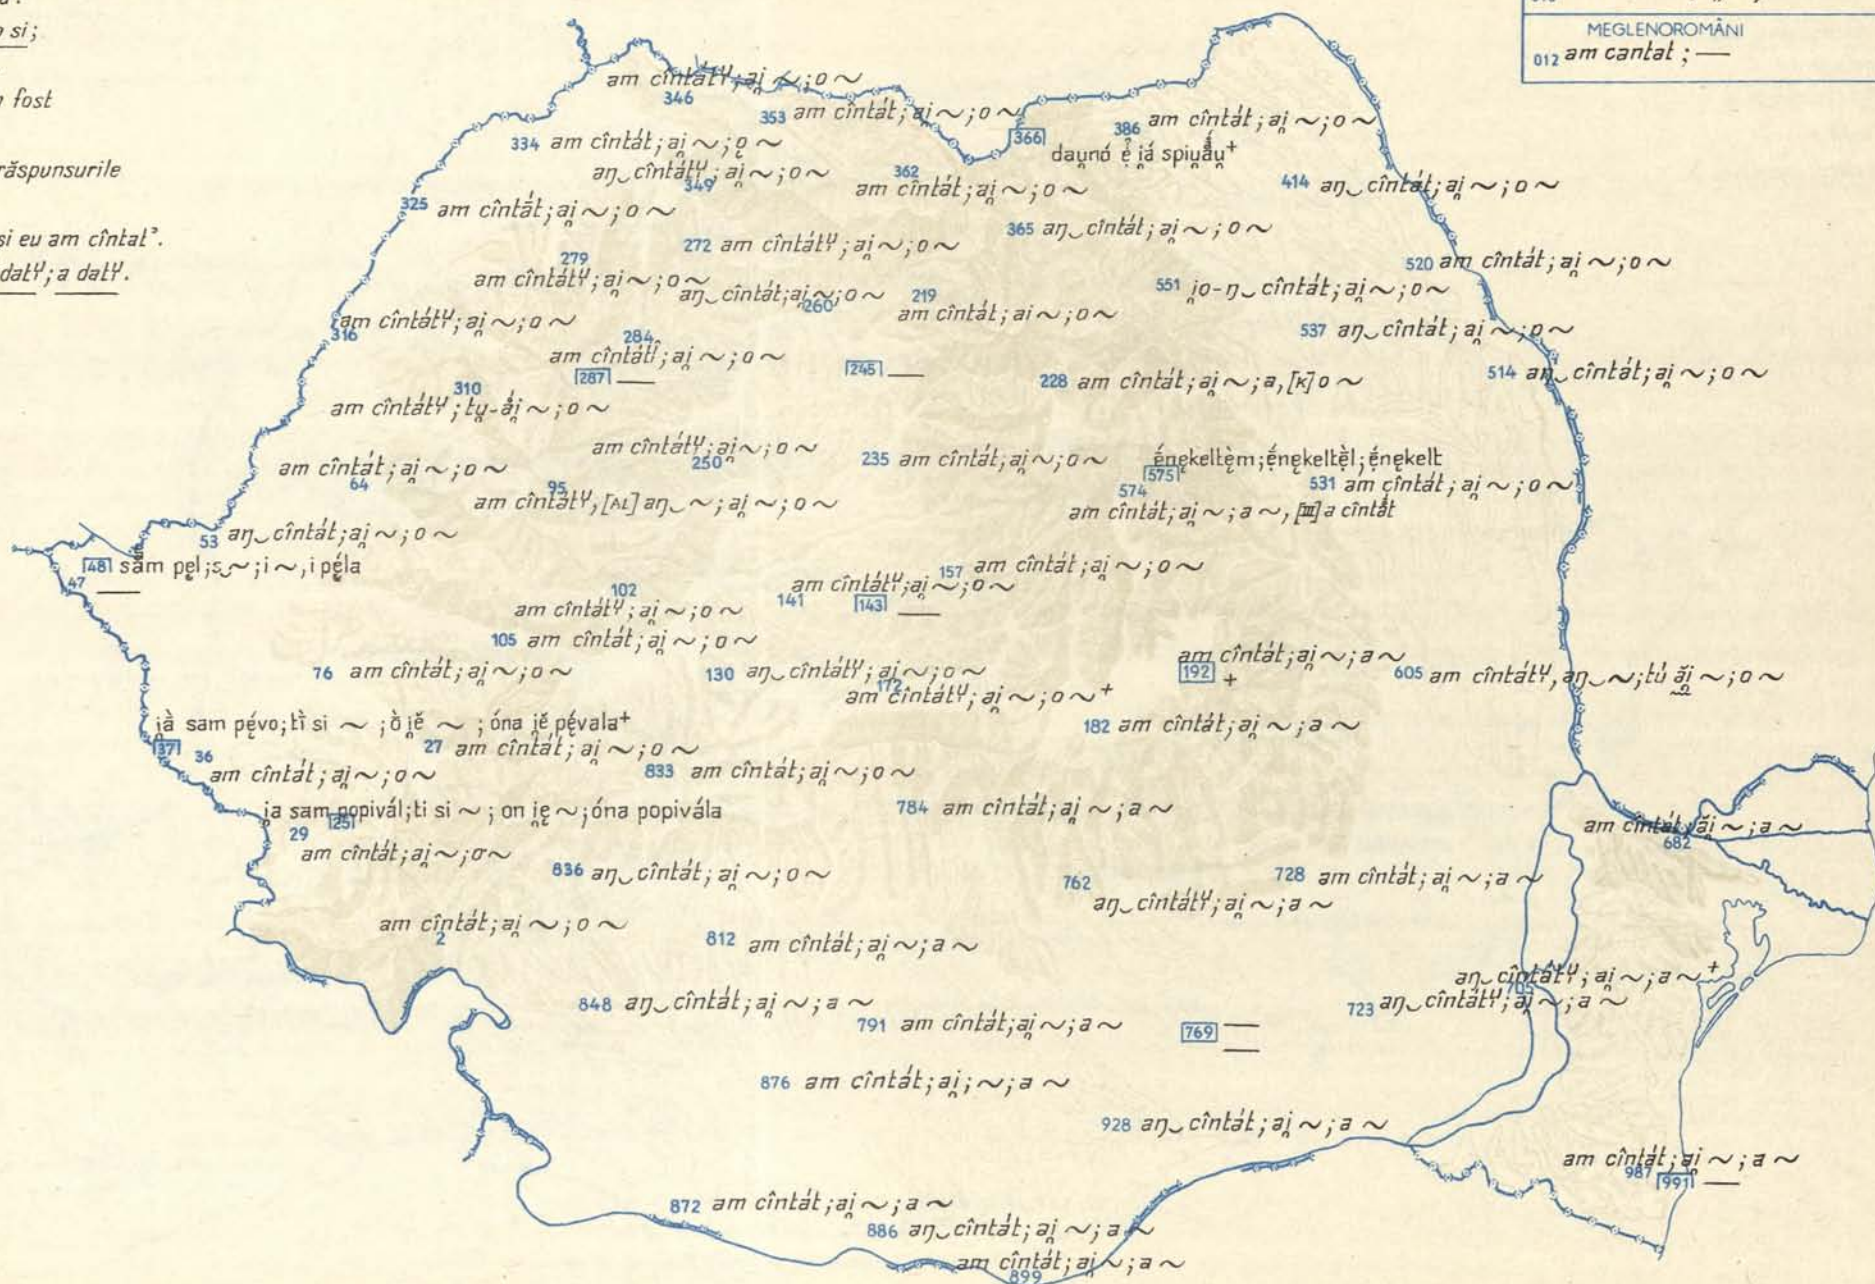 si;
fost
răspunsurile
si eu am cîntatˀ.
datʸ; a datʸ.
MEGLENOROMÂNI
012 am cantat ; —
346 am cîntátʸ; ai̯ ~; o ~
353 am cîntát; ai̯ ~; o ~
386 am cîntát; ai̯ ~; o ~
334 am cîntát; ai̯ ~; o̯ ~
366 dau̯nó ẹ̉ i̯á spiu̯ắu̯⁺
349 aŋ‿cîntátʸ; ai̯ ~; o ~
362 am cîntát; ai̯ ~; o ~
414 aŋ‿cîntát; ai̯ ~; o ~
325 am cîntát; ai̯ ~; o ~
365 aŋ‿cîntát; ai̯ ~; o ~
272 am cîntátʸ; ai̯ ~; o ~
520 am cîntát; ai̯ ~; o ~
279 am cîntátʸ; ai̯ ~; o ~
260 aŋ‿cîntát; ai̯ ~; o ~
219 am cîntát; ai ~; o ~
551 i̯o-ŋ‿cîntát; ai̯ ~; o ~
316 am cîntátʸ; ai̯ ~; o ~
537 aŋ‿cîntát; ai̯ ~; o ~
284 am cîntát́; ai̯ ~; o ~
287 —
245 —
228 am cîntát; ai̯ ~; a, [K] o ~
514 aŋ‿cîntát; ai̯ ~; o ~
310 am cîntátʸ; tu̯-ái̯ ~; o ~
250 am cîntátʸ; ai̯ ~; o ~
235 am cîntát; ai̯ ~; o ~
575 ẹ́nękeltèm; ẹ́nękeltèl; ẹ́nękelt
64 am cîntát; ai̯ ~; o ~
531 am cîntát; ai̯ ~; o ~
95 am cîntátʸ, [AL] aŋ‿~; ai̯ ~; o ~
574 am cîntát; ai̯ ~; a ~, [III] a cîntắt
53 aŋ‿cîntát; ai̯ ~; o ~
48 sắm pęl; s‿~; i ~, i pẹ́la
47 —
157 am cîntát; ai̯ ~; o ~
141 am cîntátʸ; ai̯ ~; o ~
102 am cîntátʸ; ai̯ ~; o ~
143 —
105 am cîntát; ai̯ ~; o ~
192 am cîntát; ai̯ ~; a ~ +
76 am cîntát; ai̯ ~; o ~
130 aŋ‿cîntátʸ; ai̯ ~; o ~
605 am cîntátʸ, aŋ‿~; tú ăi̯ ~; o ~
172 am cîntátʸ; ai̯ ~; o ~⁺
37 i̯ȁ sam pẹ́vo; tı̏ si ~; ȍ i̯ĕ ~; óna i̯ĕ pẹ́vala⁺
182 am cîntát; ai̯ ~; a ~
27 am cîntát; ai̯ ~; o ~
36 am cîntát; ai̯ ~; o ~
833 am cîntát; ai̯ ~; o ~
25 i̯a sam popivál; ti si ~; on i̯ę ~; óna popivála
784 am cîntát; ai̯ ~; a ~
682 am cîntát; ăi̯ ~; a ~
29 am cîntát; ai̯ ~; o ~
836 aŋ‿cîntát; ai̯ ~; o ~
728 am cîntát; ai̯ ~; a ~
762 aŋ‿cîntátʸ; ai̯ ~; a ~
2 am cîntát; ai̯ ~; o ~
812 am cîntát; ai̯ ~; a ~
705 aŋ‿cîntátʸ; ai̯ ~; a ~⁺
848 aŋ‿cîntát; ai̯ ~; a ~
723 aŋ‿cîntátʸ; ai̯ ~; a ~
791 am cîntát; ai̯ ~; a ~
769 —
—
876 am cîntát; ai̯; ~; a ~
928 aŋ‿cîntát; ai̯ ~; a ~
987 am cîntát; ai̯ ~; a ~
991 —
872 am cîntát; ai̯ ~; a ~
886 aŋ‿cîntát; ai̯ ~; a ~
899 am cîntát; ai̯ ~; a ~